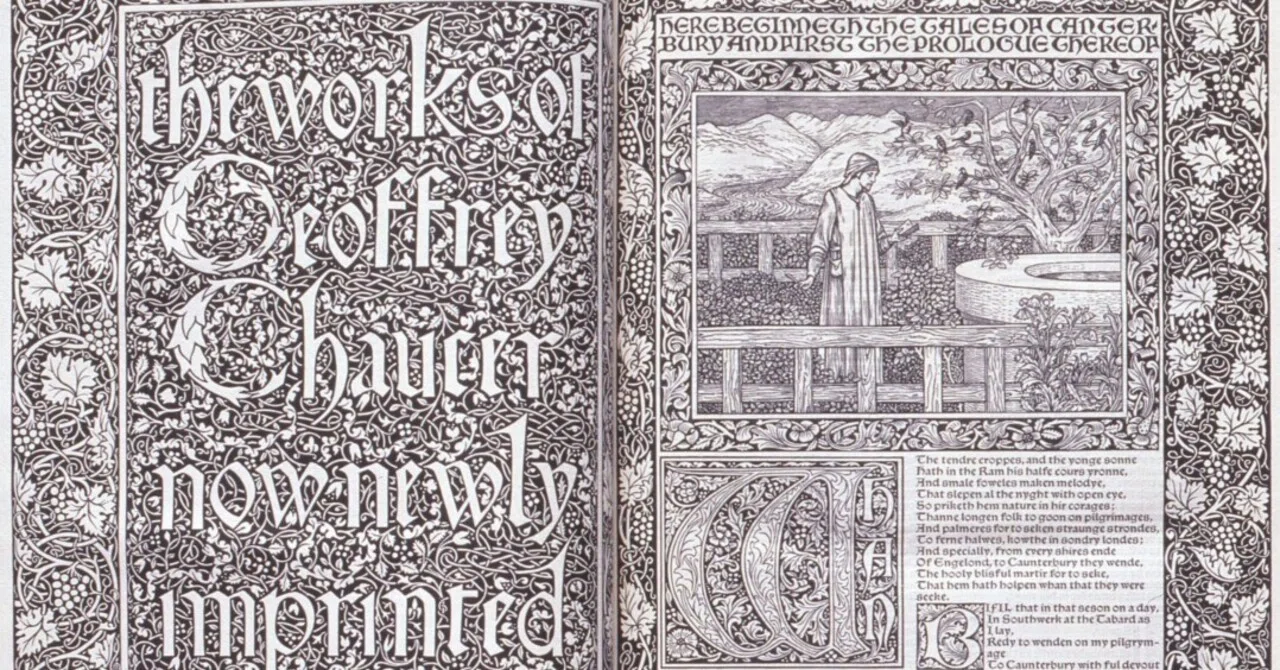 the works of
Geoffrey
Chaucer
now newly
imprinted
HERE BEGINNETH THE TALES OF CANTER-
BURY AND FIRST THE PROLOGUE THEREOF
WHAN
The tendre croppes, and the yonge sonne
Hath in the Ram his halfe cours yronne,
And smale foweles maken melodye,
That slepen al the nyght with open eye,
So priketh hem nature in hir corages;
Thanne longen folk to goon on pilgrimages,
And palmeres for to seken straunge strondes,
To ferne halwes, kowthe in sondry londes;
And specially, from every shires ende
Of Engelond, to Caunterbury they wende,
The hooly blisful martir for to seke,
That hem hath holpen whan that they were
seeke.
BIFIL that in that seson on a day,
In Southwerk at the Tabard as
I lay,
Redy to wenden on my pilgrym-
age
To Caunterbury with ful devout